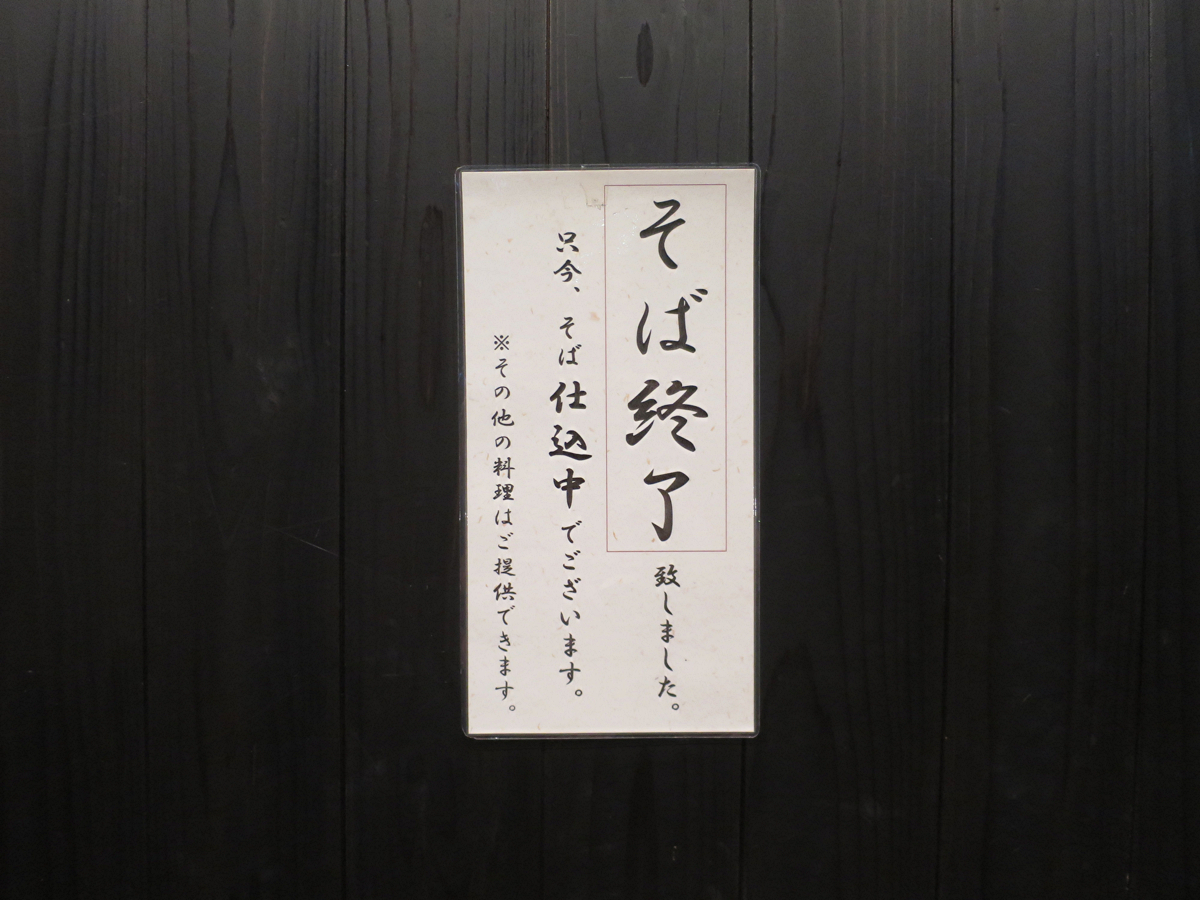 そば終了致しました。
只今、そば仕込中でございます。
※その他の料理はご提供できます。